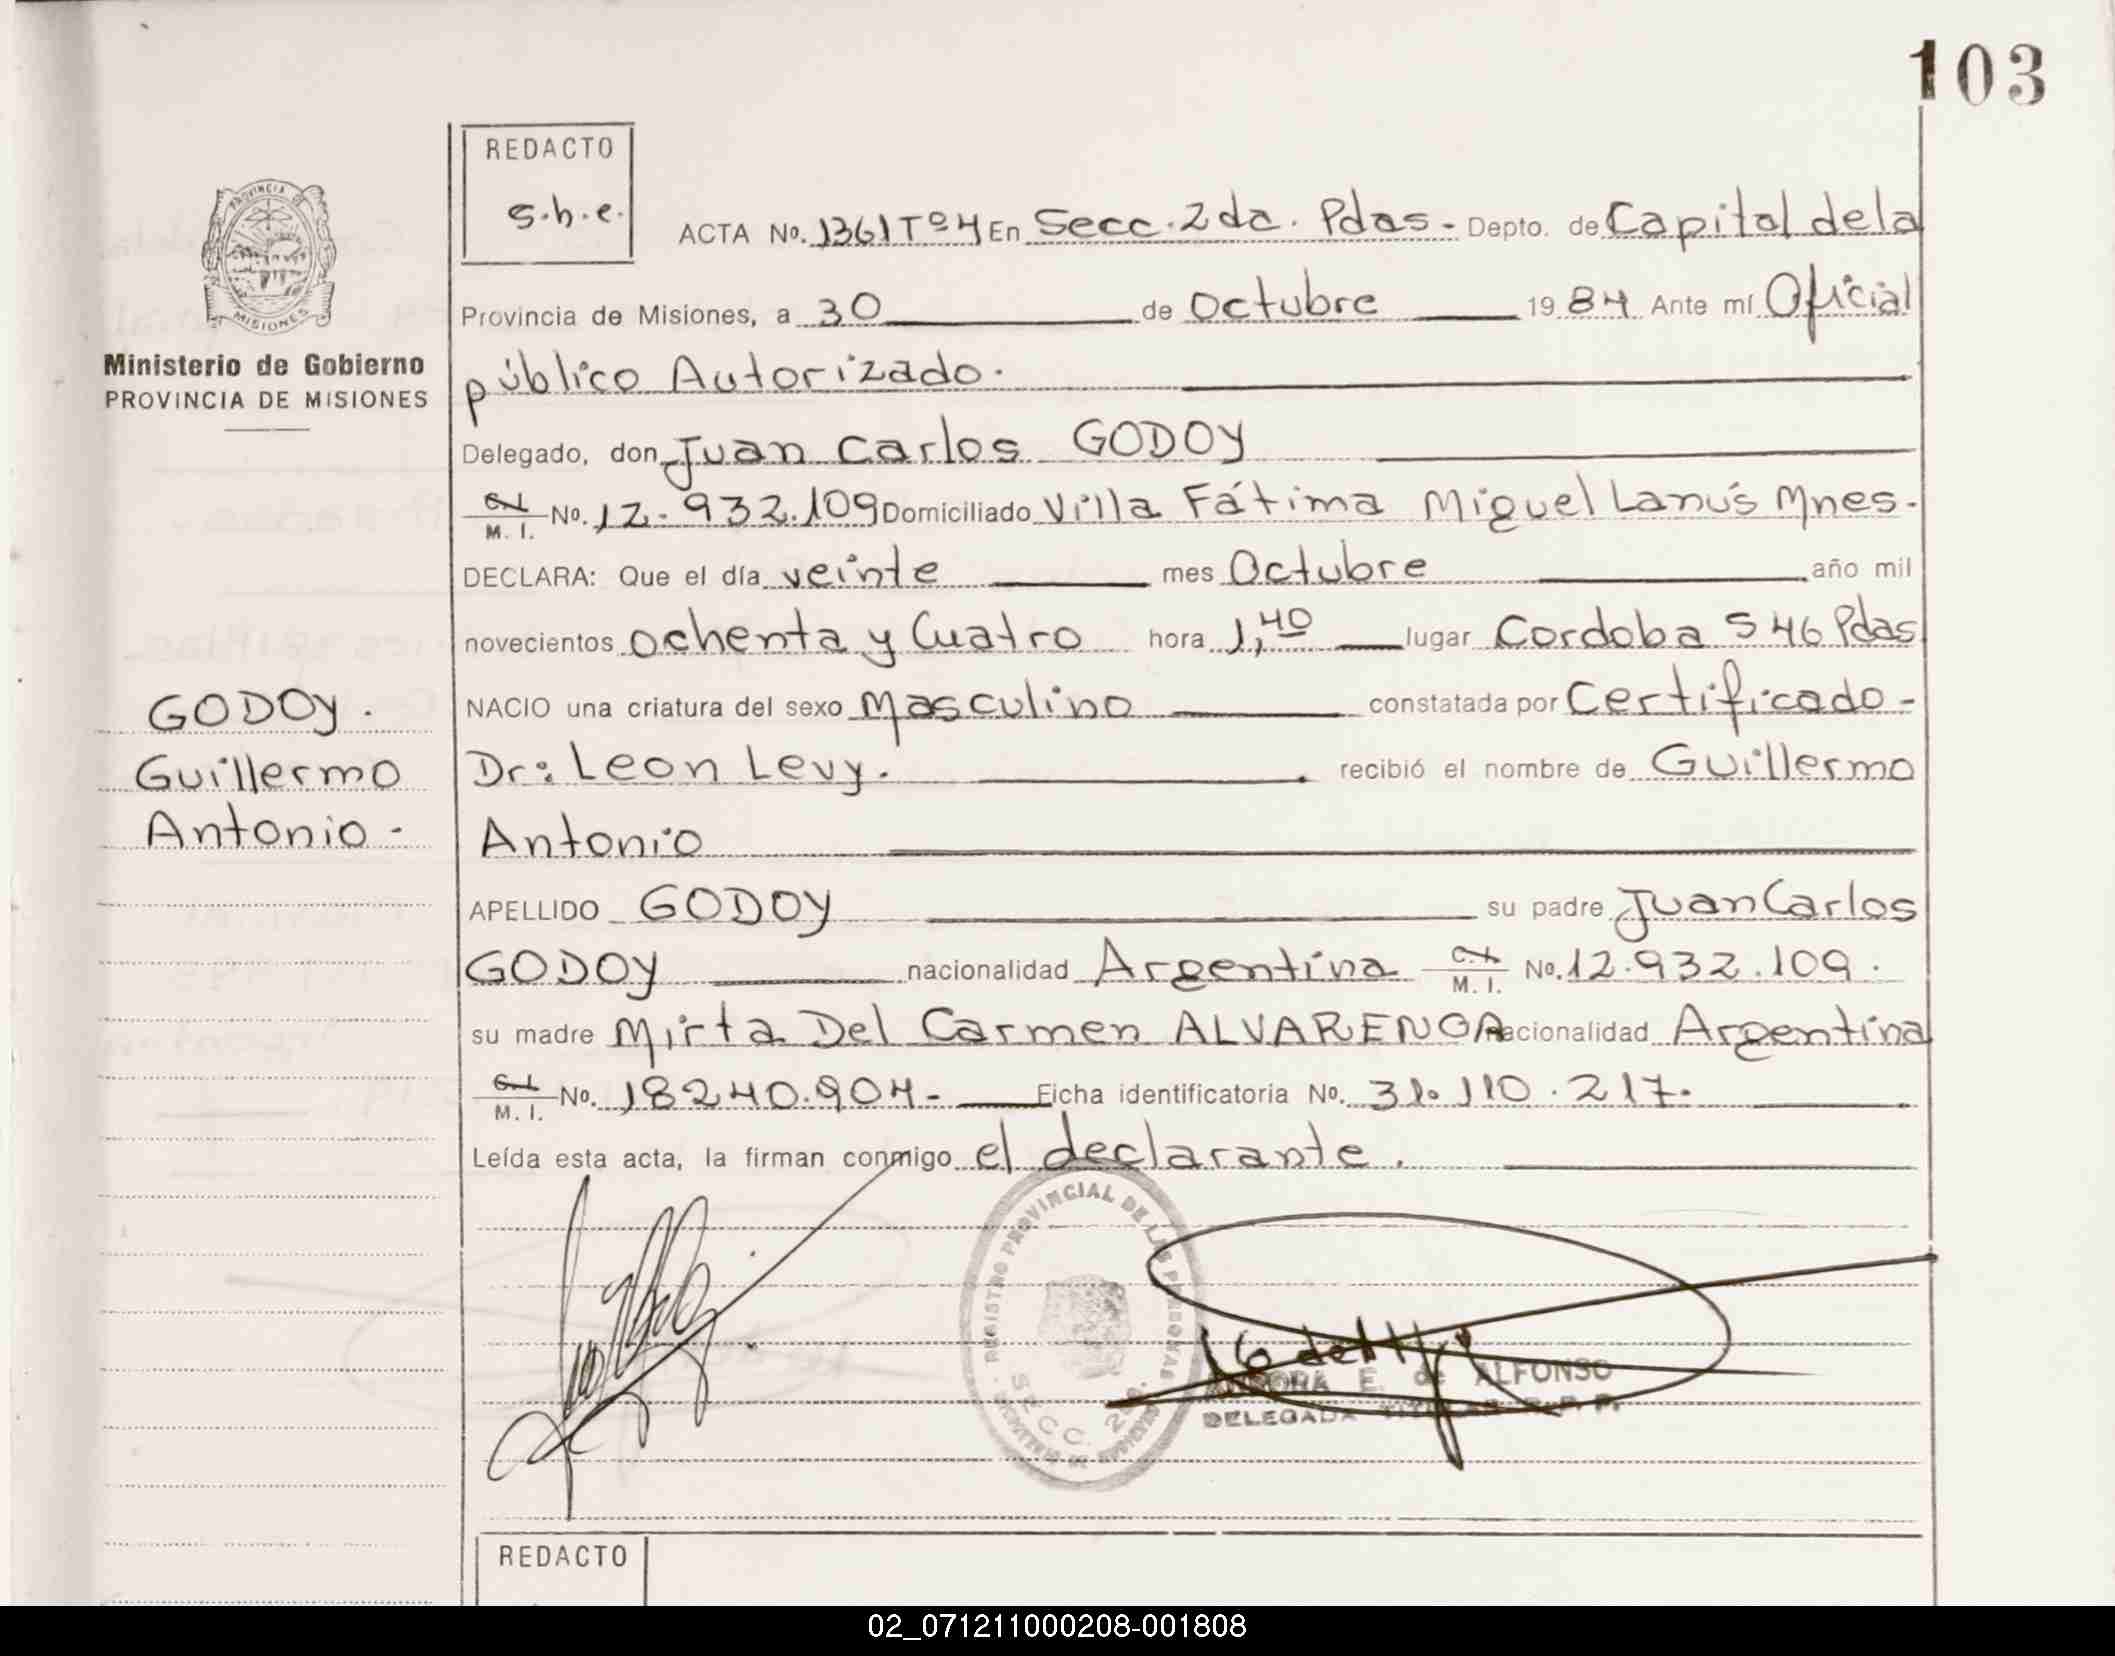 103
REDACTO
s.h.e.
ACTA No. 1361 Tº 4 En Secc. 2da. Pdas - Depto. de Capital dela
Provincia de Misiones, a 30 de Octubre 1984 Ante mí Oficial
público Autorizado.
Delegado, don Juan Carlos GODOY
C.I. M. I. No. 12.932.109 Domiciliado Villa Fátima Miguel Lanús Mnes.
DECLARA: Que el día veinte mes Octubre año mil
novecientos ochenta y Cuatro hora 1,40 lugar Cordoba 546 Pdas
NACIO una criatura del sexo Masculino constatada por Certificado -
Dr: Leon Levy. recibió el nombre de Guillermo
Antonio
APELLIDO GODOY su padre Juan Carlos
GODOY nacionalidad Argentina C.I. M. I. No. 12.932.109.
su madre Mirta Del Carmen ALVARENGA nacionalidad Argentina
C.I. M. I. No. 18240.904 - Ficha identificatoria No. 31.110.217.
Leída esta acta, la firman conmigo el declarante.
PROVINCIA DE MISIONES
Ministerio de Gobierno
PROVINCIA DE MISIONES
GODOY.
Guillermo
Antonio -
REGISTRO PROVINCIAL DE LAS PERSONAS
SECC. 2da.
E. de ALFONSO
DELEGADA TITULAR R. P. P.
REDACTO
02_071211000208-001808